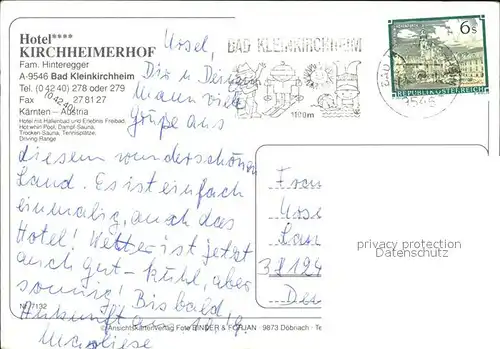 Hotel****
KIRCHHEIMERHOF
Fam. Hinteregger
A-9546 Bad Kleinkirchheim
Tel. (0 42 40) 278 oder 279
(0 42 40)
Fax 278127
Kärnten – Austria
Hotel mit Hallenbad und Erlebnis Freibad,
Hot whirl Pool, Dampf Sauna,
Trocken Sauna, Tennisplätze,
Driving Range
BAD KLEINKIRCHHEIM
1100m
6 S
REPUBLIK ÖSTERREICH
9546
Ursel,
Dir u Deinem
Mann viele
Grüße aus
diesem wunderschönen
Land. Es ist einfach
einmalig, auch das
Hotel! Wetter ist jetzt
auch gut – kühl, aber
sonnig! Bis bald
Ankunft am
Marliese
38124
privacy protection
Datenschutz
Nr. 7132
© Ansichtskartenverlag Foto BINDER & FORJAN · 9873 Döbriach · Te